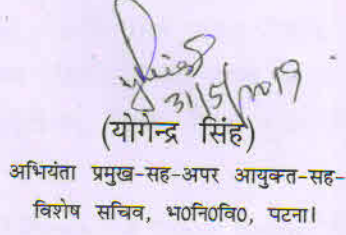 31/5/2019
(योगेन्द्र सिंह)
अभियंता प्रमुख-सह-अपर आयुक्त-सह-
विशेष सचिव, भ०नि०वि०, पटना।